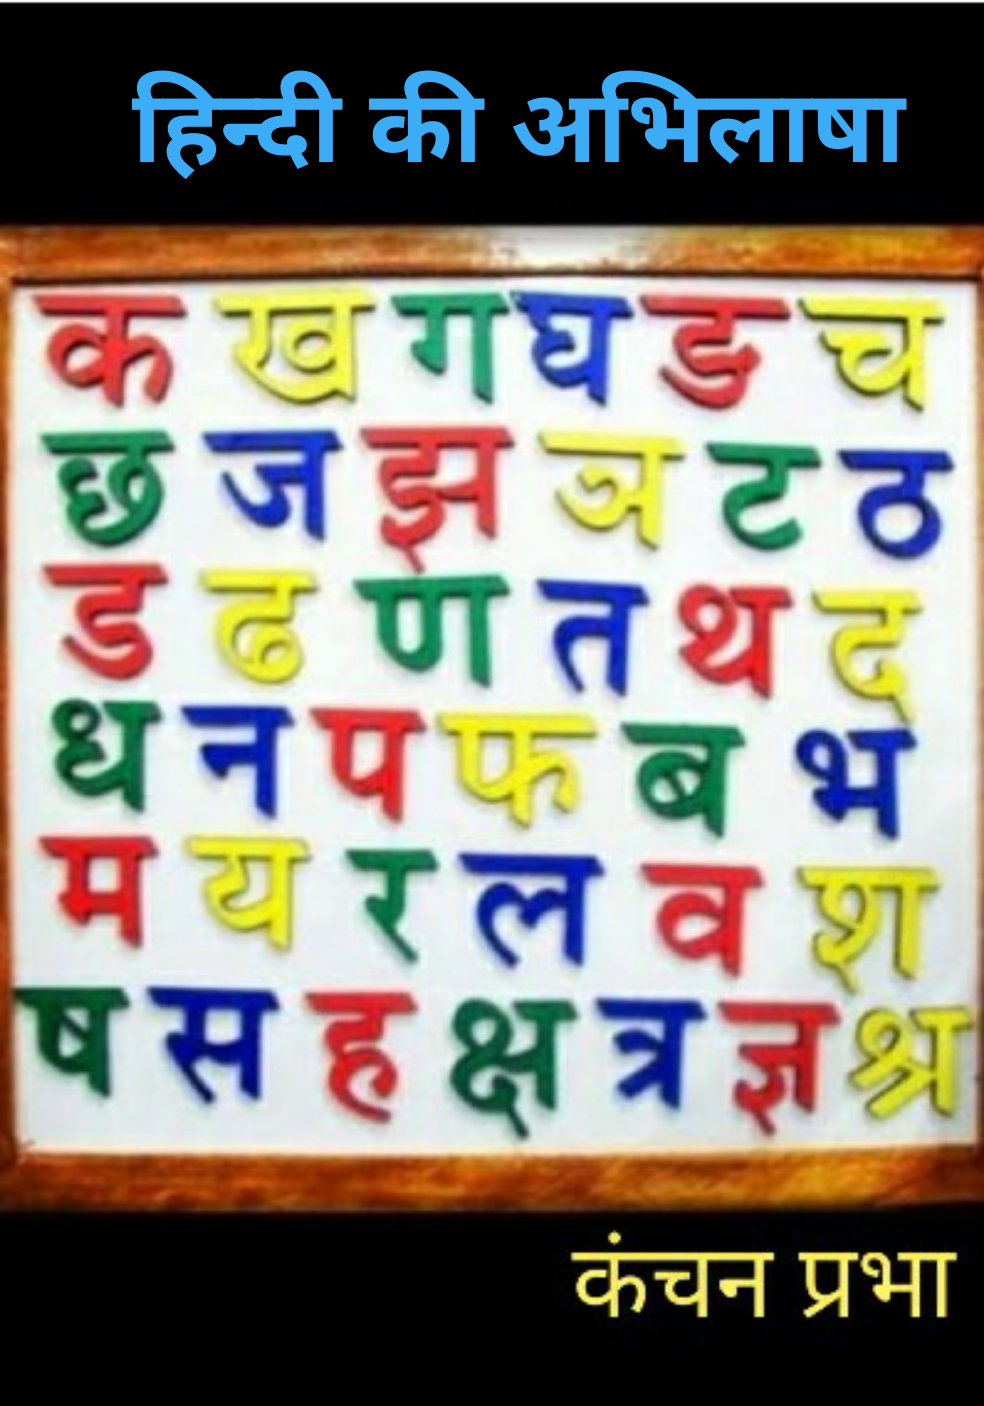 हिन्दी की अभिलाषा
क ख ग घ ङ च
छ ज झ ञ ट ठ
ड ढ ण त थ द
ध न प फ ब भ
म य र ल व श
ष स ह क्ष त्र ज्ञ श्र
कंचन प्रभा